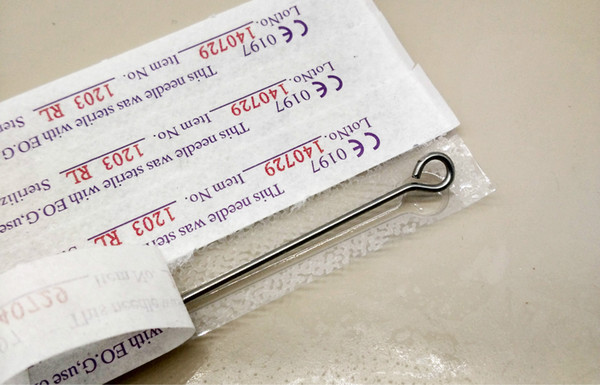 with EO.G,use
CE 0197 This needle was
LotNo. 140729 Item No. 1203 RL
CE 0197 This needle was sterile with EO.G,use
LotNo. 140729 Item No. 1203 RL
CE 0197 This needle was sterile with EO.G
LotNo. 140729 Item No. 1203 RL